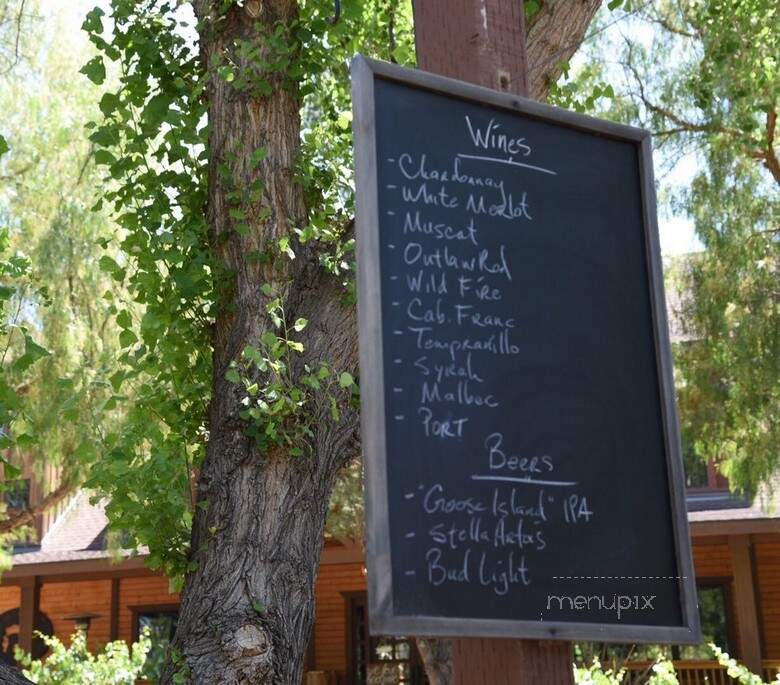 Wines
- Chardonnay
- White Merlot
- Muscat
- Outlaw Red
- Wild Fire
- Cab. Franc
- Tempranillo
- Syrah
- Malbec
- PORT
Beers
- "Goose Island" IPA
- Stella Artois
- Bud Light
menupix